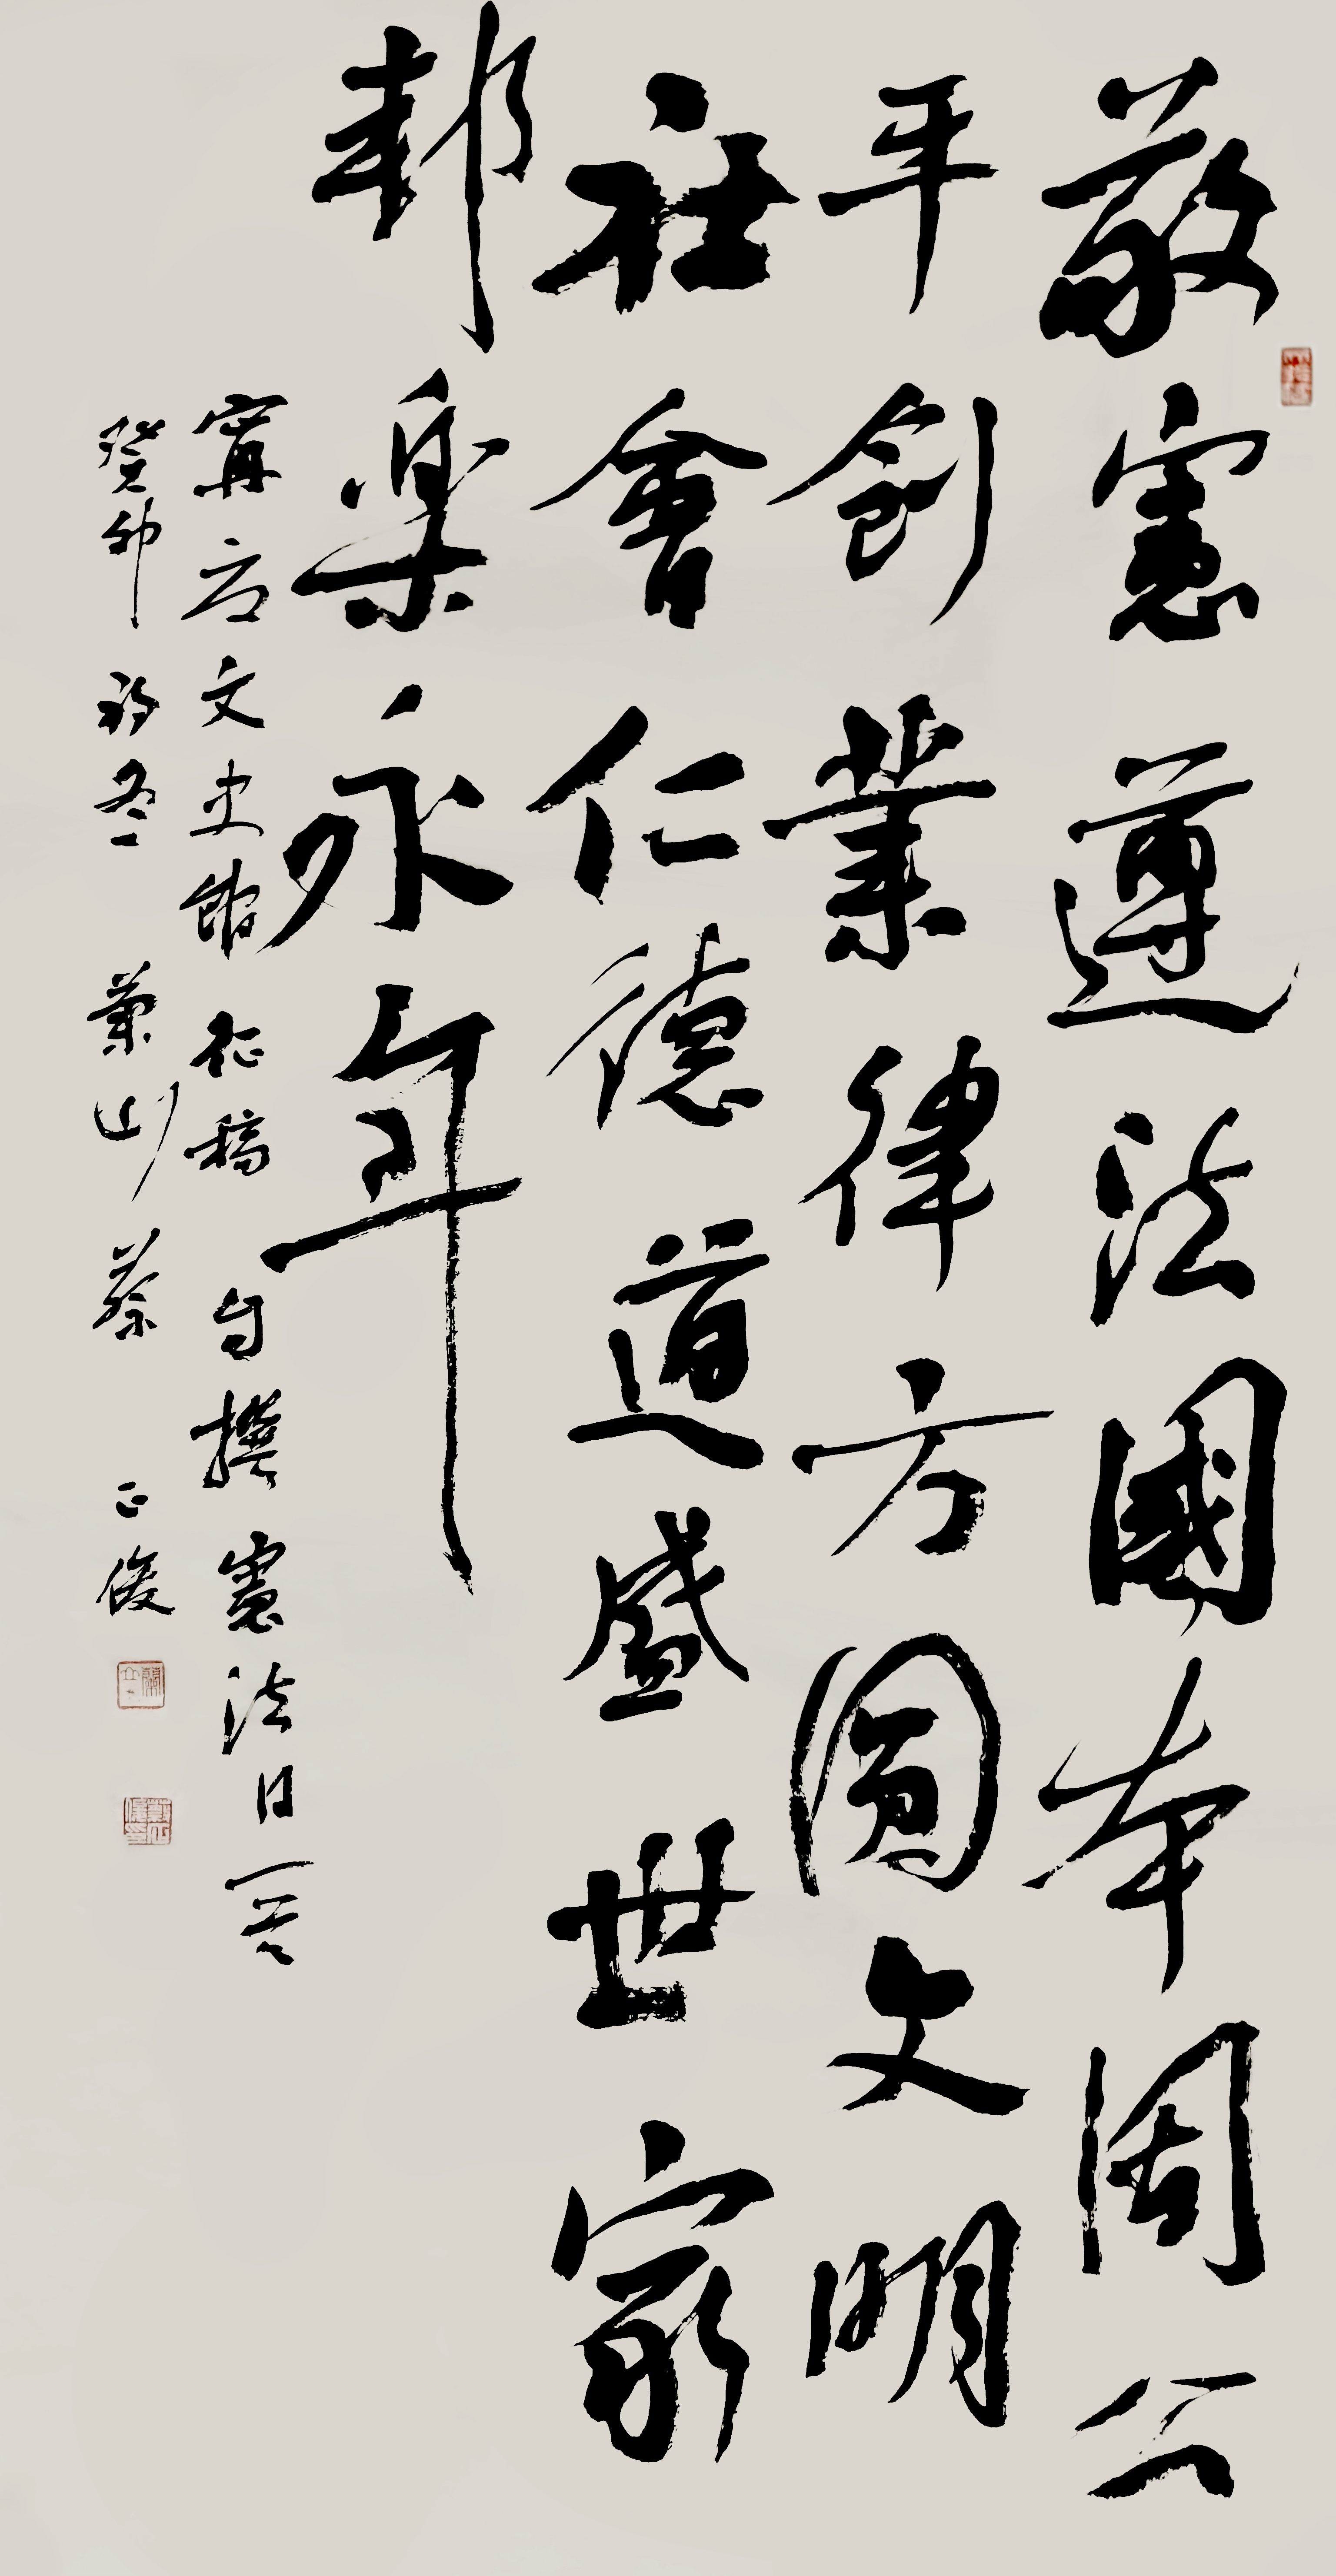 敬憲遵法國本固公
平創業律方圓文明
社會仁德道盛世家
邦樂永年
寧夏文史館征稿自撰憲法日一首
癸卯初冬蘭山蔡正俊